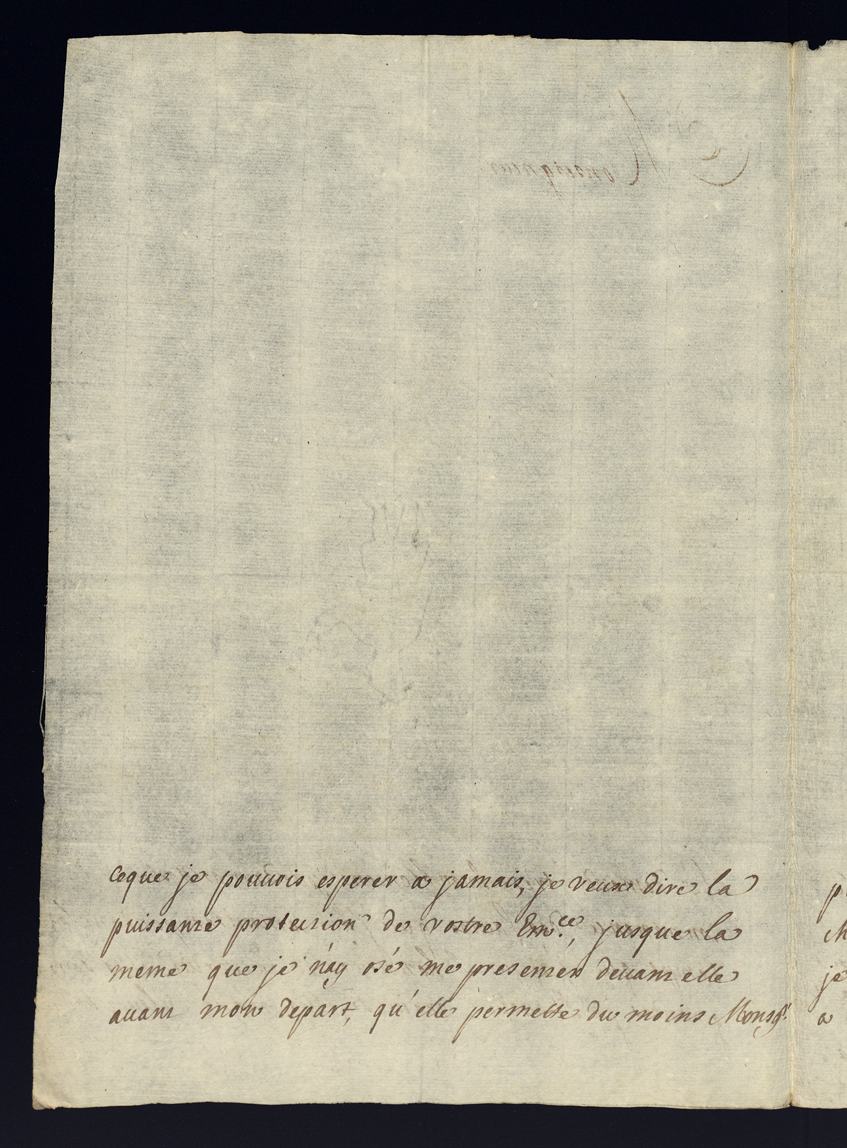 Monseigneur
ceque je pouuois esperer a jamais, je veux dire la
puissante protection de vostre Em.ce, jusque la
meme que je n'ay osé me presenter deuant elle
auant mon depart, qu'elle permette du moins Monsgr
p
M
je
a